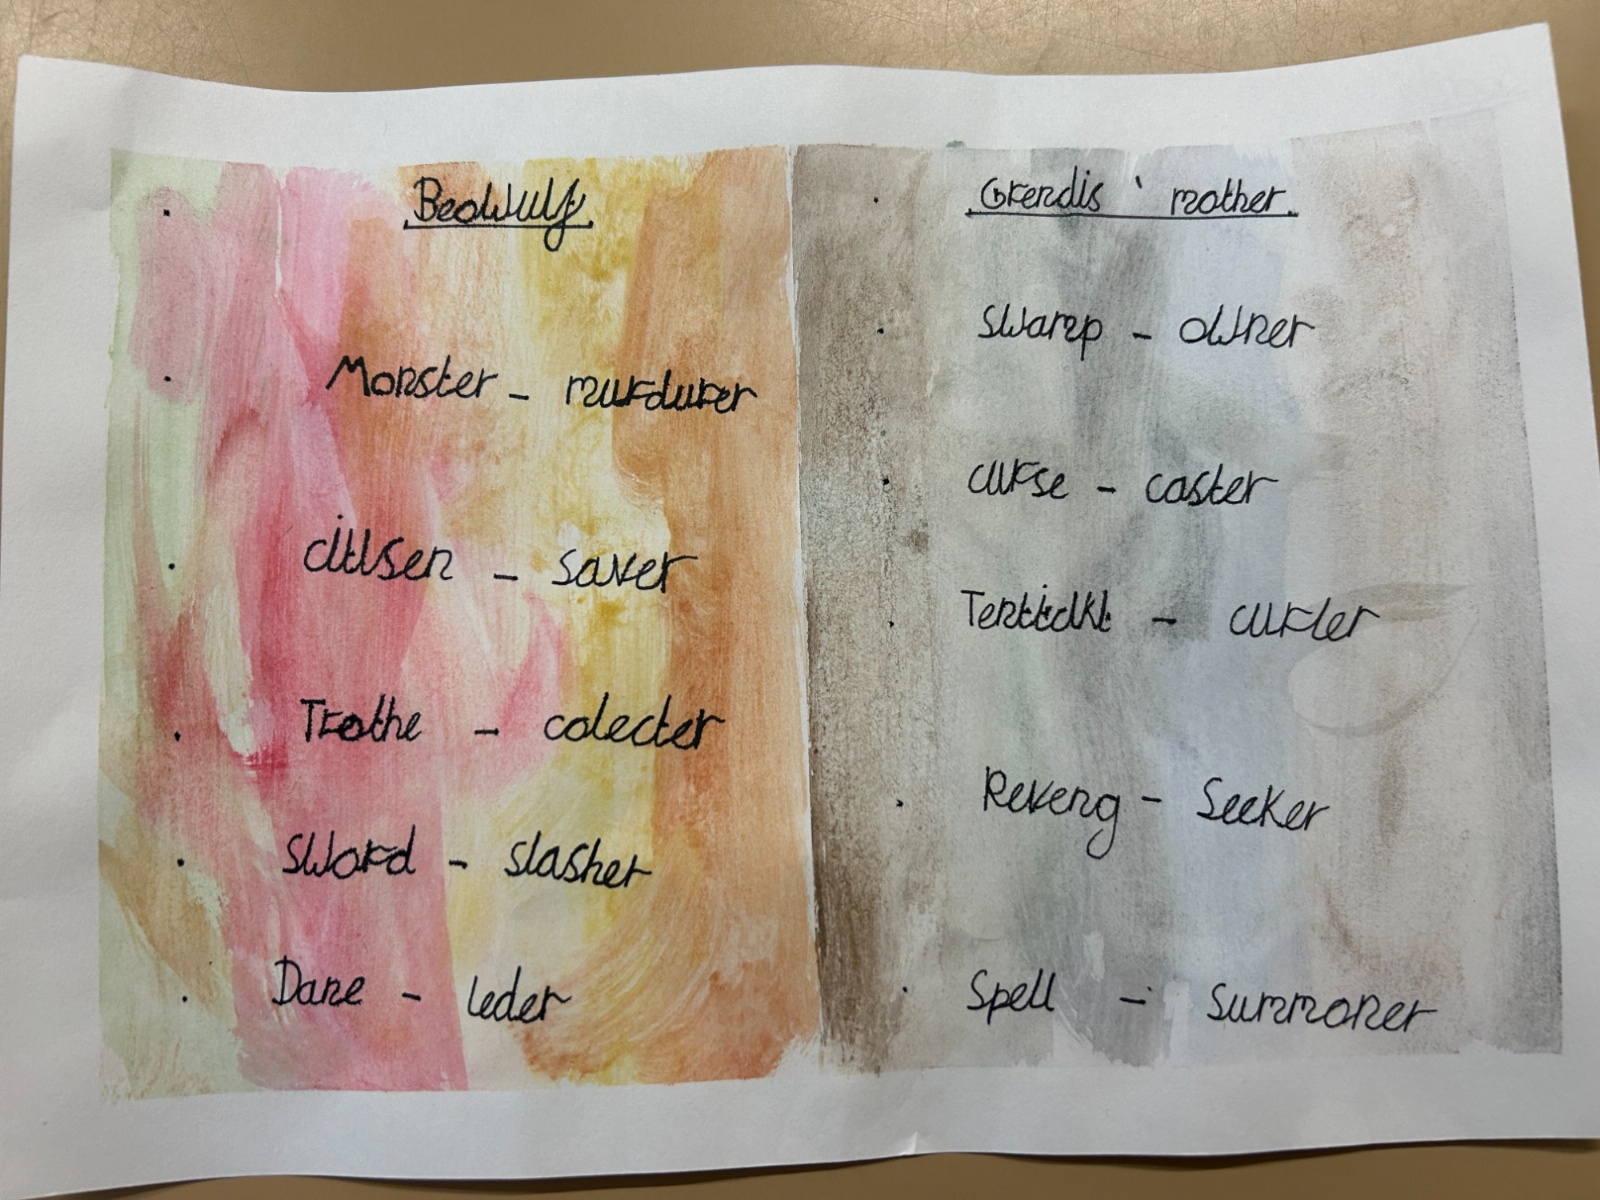 Beowulf
Monster - murdurer
citisen - saver
Trothe - colecter
Sword - slasher
Dane - leder
Grendls ' mother.
Swamp - owner
curse - caster
curler
Reveng - Seeker
Spell - Summoner